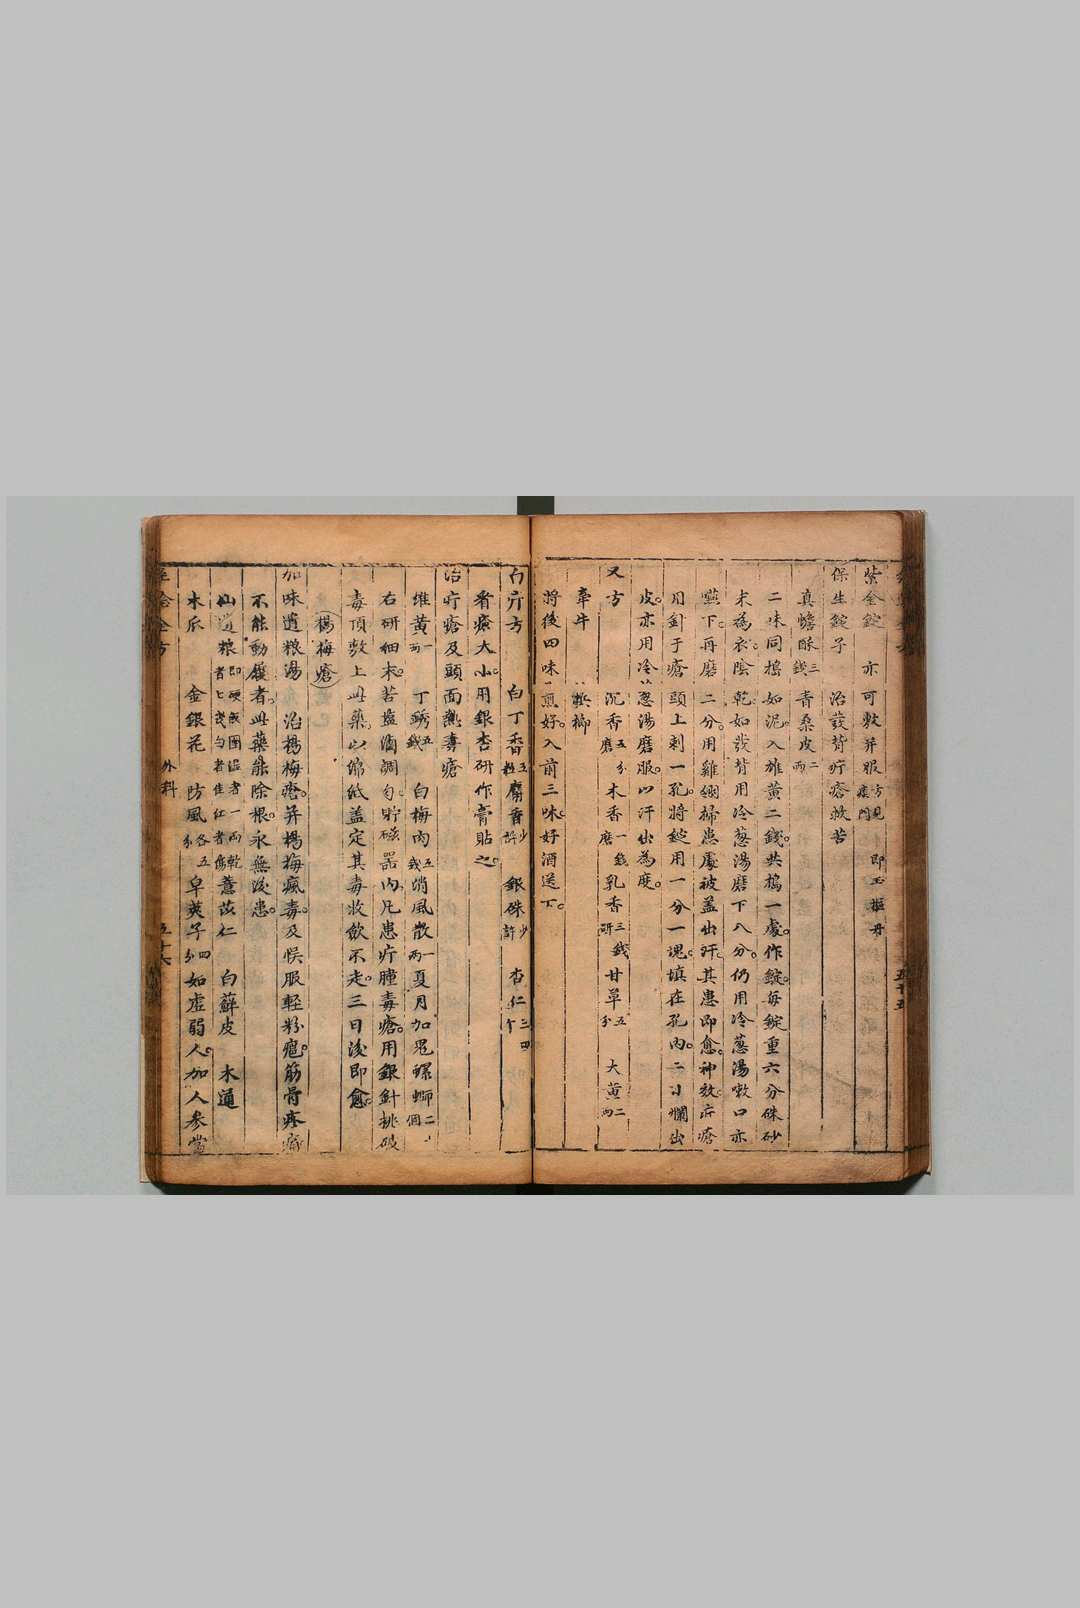 紫金錠 亦可敷并服 方見痰門 即玉樞丹
保生錠子 治發背疔瘡救苦
真蟾酥三錢 青桑皮二兩
二味同搗如泥入雄黃二錢共搗一處作錠每錠重六分硃砂
末為衣陰乾如發背用冷葱湯磨下八分仍用冷葱湯嗽口亦
嚥下再磨二分用雞翎掃患處被蓋出汗其患即愈神效疔瘡
用針于瘡頭上刺一孔將錠用一分一塊填在孔內二小爛出
皮亦用冷葱湯磨服以汗出為度
又方 沉香五分磨 木香一錢磨 乳香三錢研 甘草五分 大黃二兩
牽牛 檳榔
將後四味煎好入前三味好酒送下
五十五
白疔方 白丁香五粒 麝香少許 銀硃少許 杏仁三四个
看瘡大小用銀杏研作膏貼之
治疔瘡及頭面熱毒瘡
雄黃一兩 丁銹五錢 白梅肉五錢 消風散一兩 夏月加 螺螄二個
右研細末若 滷調勻貯磁器內凡患疔腫毒瘡用銀針挑破
毒頂敷上此藥以綿紙蓋定其毒收斂不走三日後即愈
楊梅瘡
加味遺粮湯 治楊梅瘡并楊梅瘋毒及悞服輕粉瘡筋骨疼痛
不能動履者此藥能除根永無後患
仙遺粮 薏苡仁 白蘚皮 木通
木瓜 金銀花 防風各五分 皁莢子四分 如虛弱人加人參當
外科
五十六